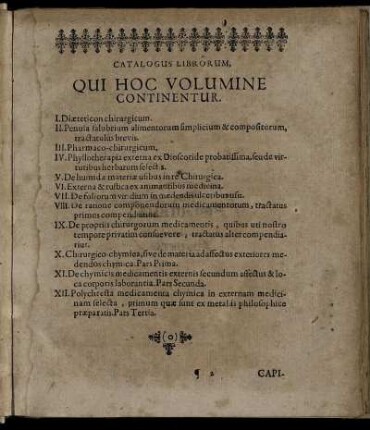 CATALOGUS LIBRORUM,
QUI HOC VOLUMINE
CONTINENTUR.
I. Diæteticon chirurgicum.
II. Penuia salubrium alimentorum simplicium & compositorum,
tractatulus brevis.
III. Pharmaco-chirurgicum,
IV. Phyllotherapia externa ex Dioscoride probatissima, seu de vir-
tutibus herbarum selectis.
V. De humidæ materiæ usibus in re Chirurgica.
VI. Externa & rustica ex animantibus medicina.
VII. De foliorum viridium in medendis ulceribus usu.
VIII. De ratione componendorum medicamentorum, tractatus
primus compendiarius.
IX. De propriis chirurgorum medicamentis, quibus uti nostro
tempore privatim consuevere, tractatus alter compendia-
rius.
X. Chirurgico-chymica, sive de materia ad affectus exteriores me-
dendos chymica. Pars Prima.
XI. De chymicis medicamentis externis secundum affectus & lo-
ca corporis laborantia. Pars Secunda.
XII. Polychresta medicamenta chymica in externam medici-
nam selecta, primum quæ sunt ex metallis philosophice
præparatis. Pars Tertia.
¶ 2 CAPI-